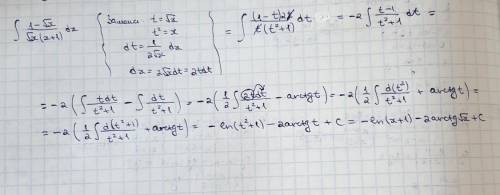 ∫ (1-√x)/(√x(x+1)) dx { Замена: t=√x = ∫ ((1-t)2t)/(t(t²+1)) dt = -2∫ (t-1)/(t²+1) dt =
t²=x
dt = 1/(2√x) dx
dx = 2√x dt = 2tdt }
= -2(∫ tdt/(t²+1) - ∫ dt/(t²+1)) = -2(1/2 ∫ 2tdt/(t²+1) - arctgt) = -2(1/2 ∫ d(t²)/(t²+1) + arctgt) =
= -2(1/2 ∫ d(t²+1)/(t²+1) + arctgt) = -ln(t²+1) - 2arctgt + C = -ln(x+1) - 2arctg√x + C